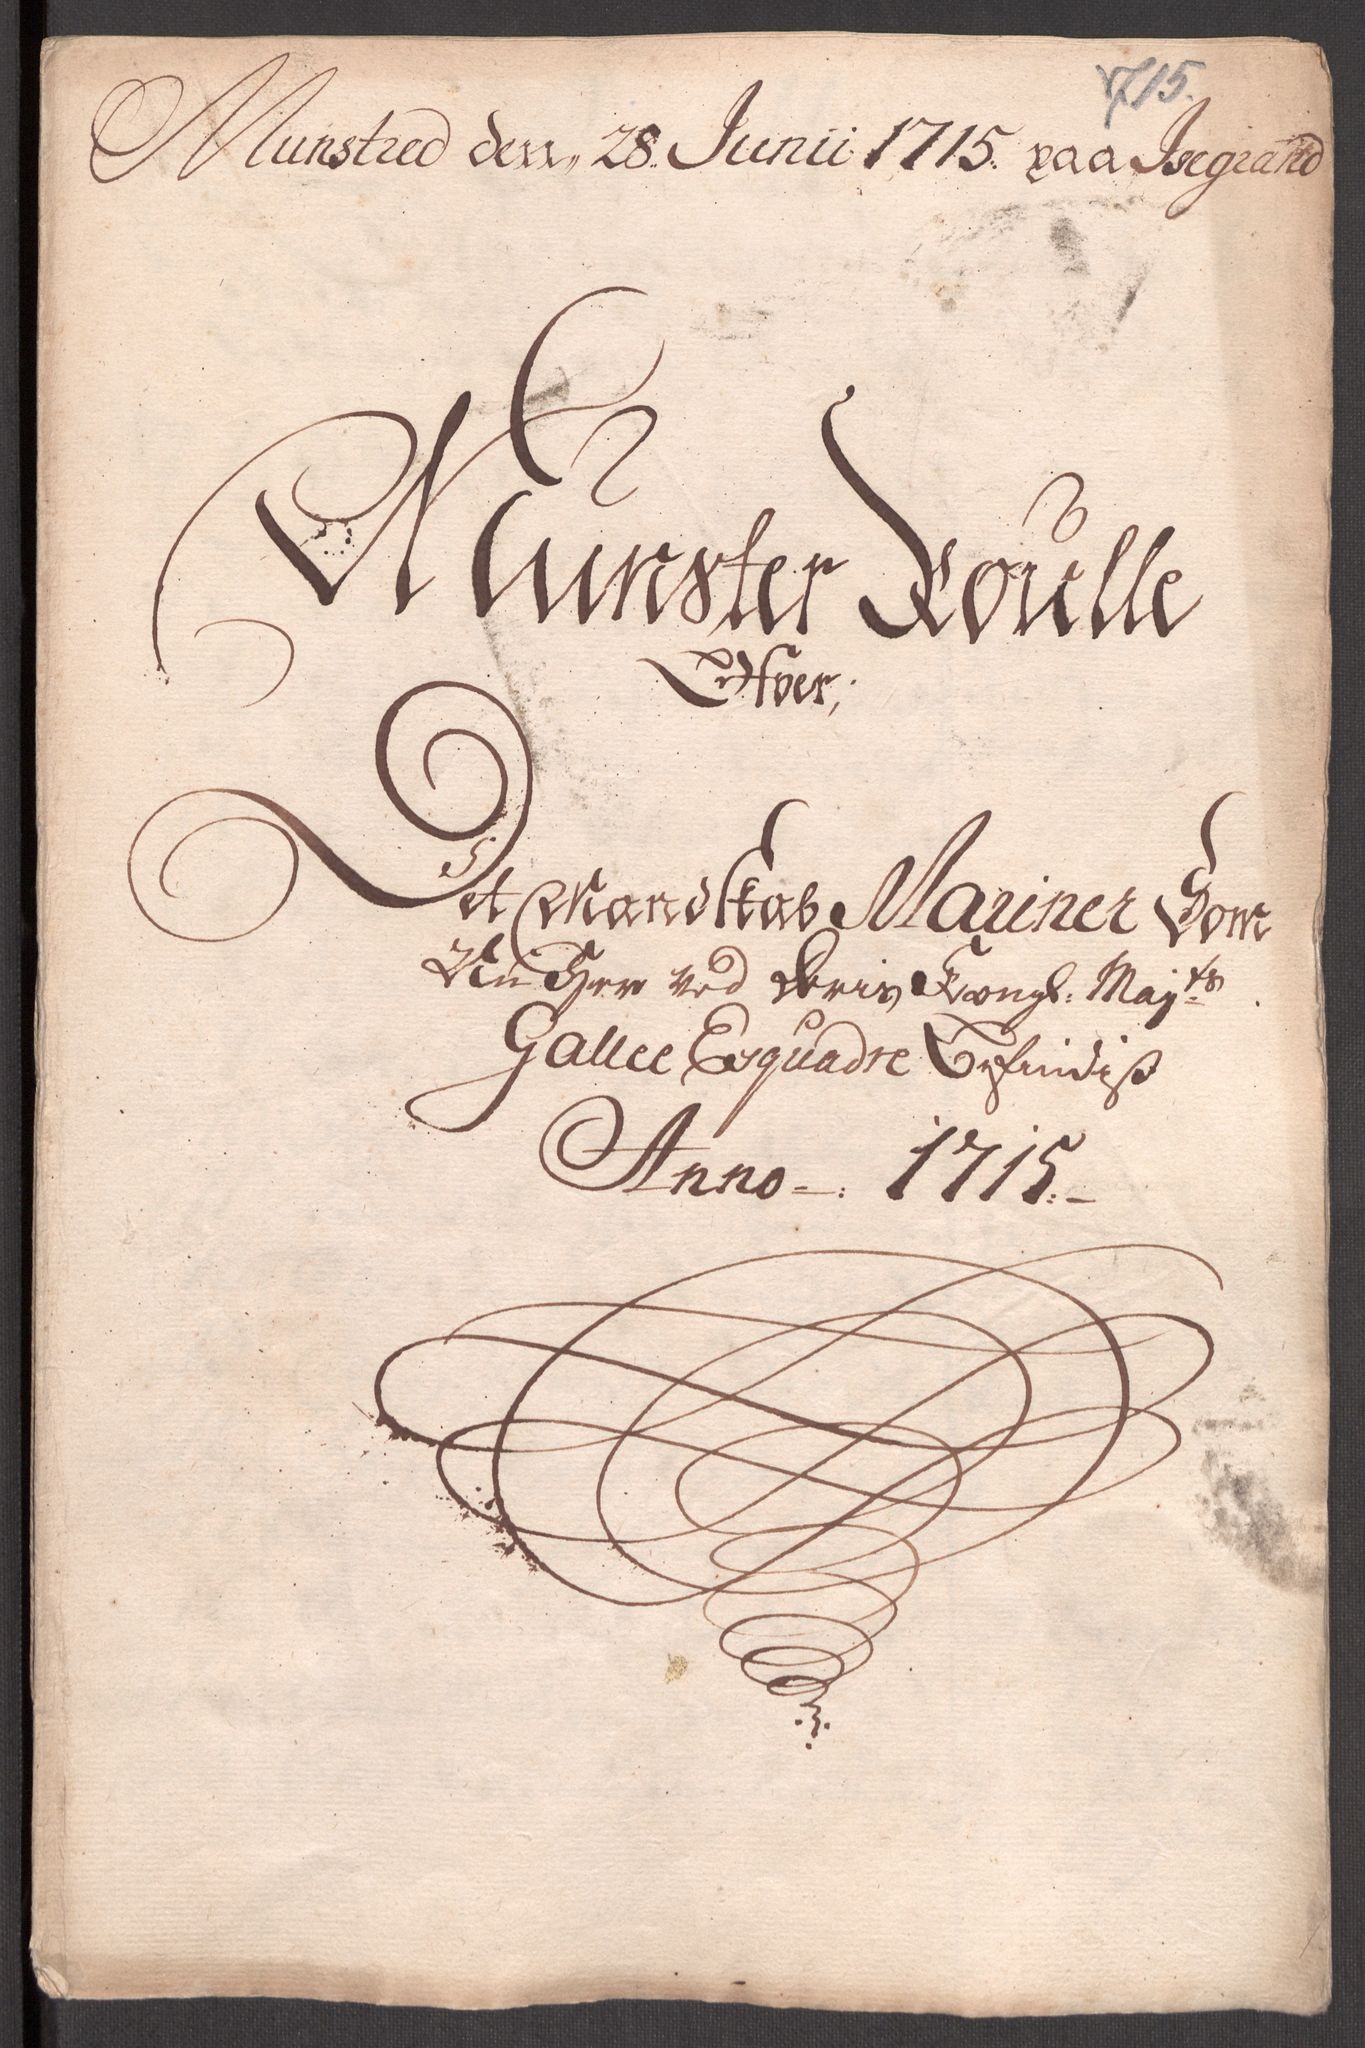 1715.
Munstred den, 28. Junii 1715. paa Isegrand
Munster Roulle
Ofver,
Det Mandskab Mariner Som
Nu Her ved deris Kongl: Maÿts
Gallee Esquadre Befindiß
Anno -: 1715.-